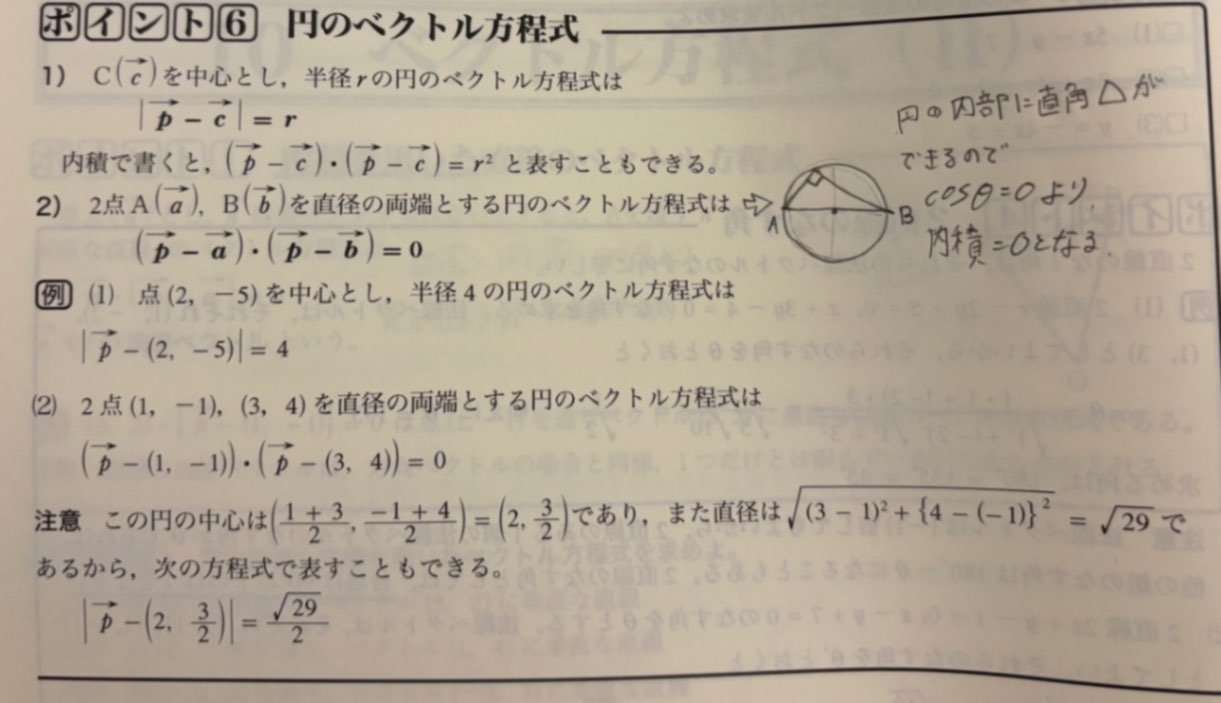 ポイント6 円のベクトル方程式
1) C(c→)を中心とし，半径rの円のベクトル方程式は
|p→ − c→| = r
内積で書くと，(p→ − c→)・(p→ − c→) = r² と表すこともできる。
2) 2点A(a→)，B(b→)を直径の両端とする円のベクトル方程式は
(p→ − a→)・(p→ − b→) = 0
円の内部に直角△が
できるので
cosθ=0より
内積=0となる
A
B
例 (1) 点(2, −5)を中心とし，半径4の円のベクトル方程式は
|p→ − (2, −5)| = 4
(2) 2点(1, −1)，(3, 4)を直径の両端とする円のベクトル方程式は
(p→ − (1, −1))・(p→ − (3, 4)) = 0
注意 この円の中心は((1+3)/2, (−1+4)/2) = (2, 3/2)であり，また直径は√((3−1)²+{4−(−1)}²) = √29 で
あるから，次の方程式で表すこともできる。
|p→ − (2, 3/2)| = √29/2